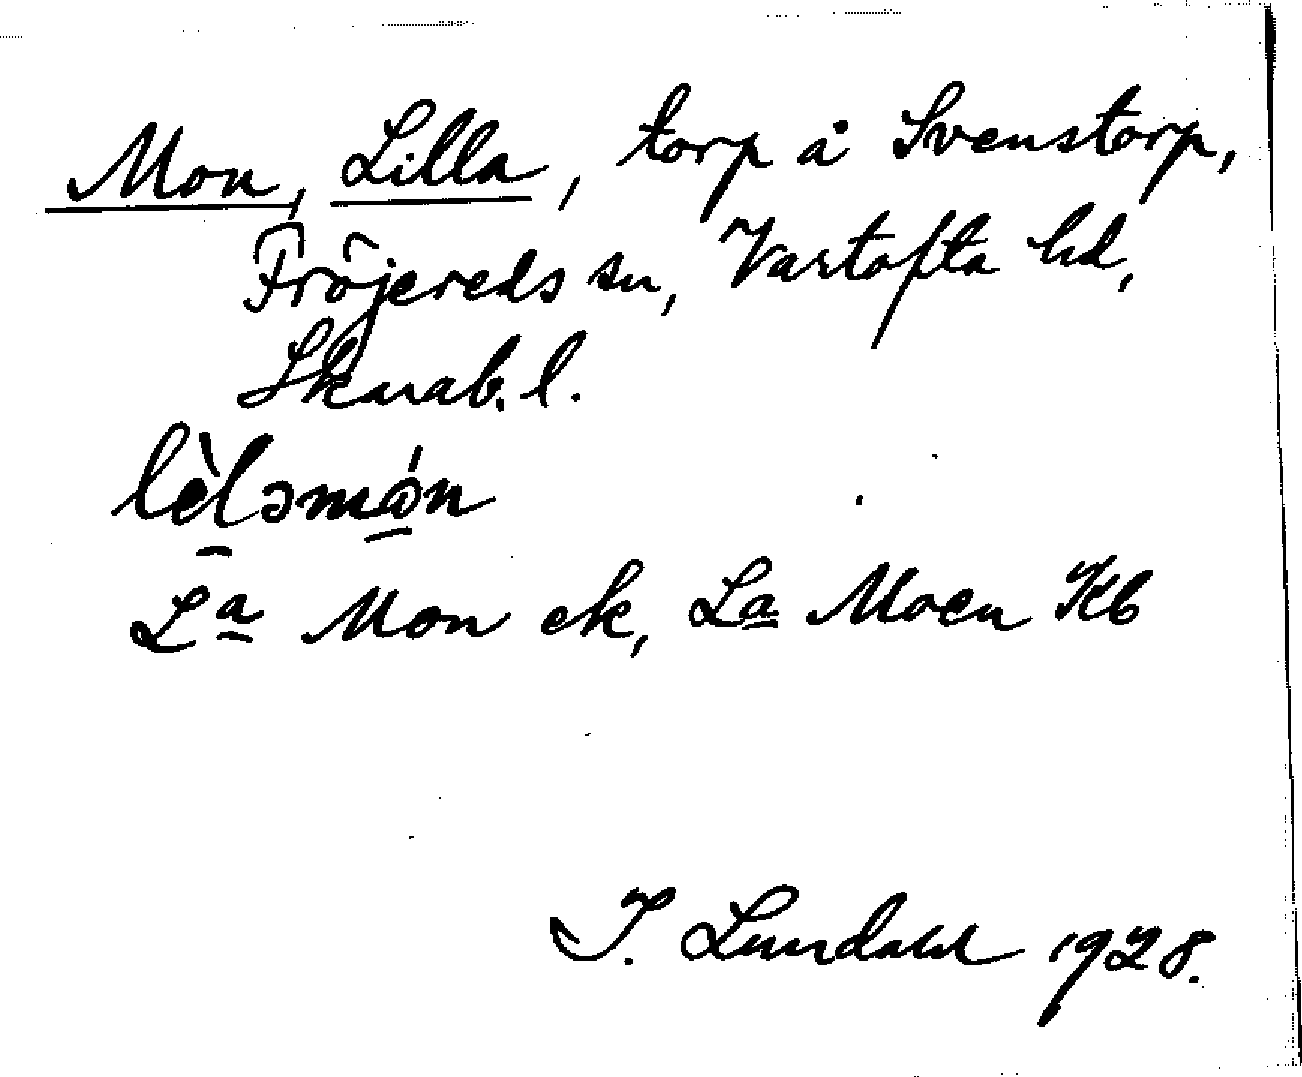 Mon, Lilla, torp å Svenstorp,
Fröjereds sn, Vartofta hd,
Skarab. l.
lèləmón
La Mon ek, La Moen Kb
I. Lundahl 1928.